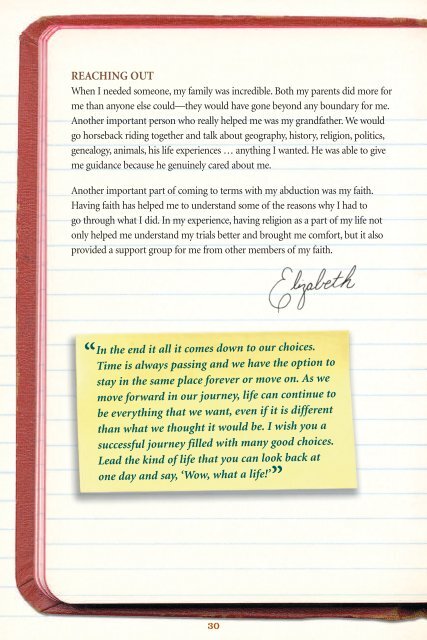 REACHING OUT
When I needed someone, my family was incredible. Both my parents did more for
me than anyone else could—they would have gone beyond any boundary for me.
Another important person who really helped me was my grandfather. We would
go horseback riding together and talk about geography, history, religion, politics,
genealogy, animals, his life experiences … anything I wanted. He was able to give
me guidance because he genuinely cared about me.
Another important part of coming to terms with my abduction was my faith.
Having faith has helped me to understand some of the reasons why I had to
go through what I did. In my experience, having religion as a part of my life not
only helped me understand my trials better and brought me comfort, but it also
provided a support group for me from other members of my faith.
Elizabeth
“In the end it all it comes down to our choices.
Time is always passing and we have the option to
stay in the same place forever or move on. As we
move forward in our journey, life can continue to
be everything that we want, even if it is different
than what we thought it would be. I wish you a
successful journey filled with many good choices.
Lead the kind of life that you can look back at
one day and say, ‘Wow, what a life!’”
30